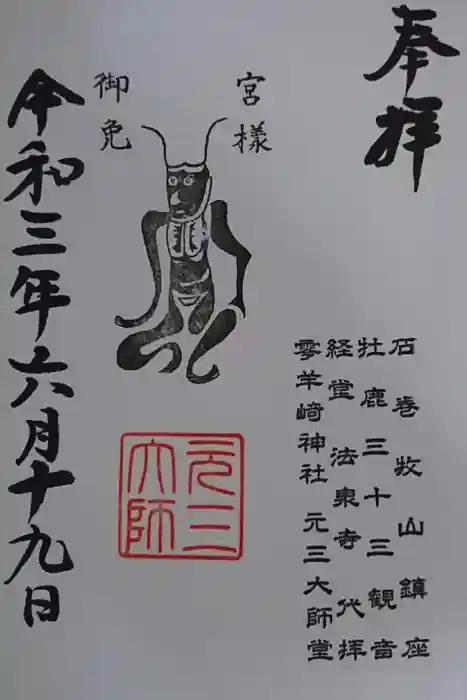 奉拝
石巻牧山鎮座
牡鹿三十三観音
経堂法泉寺代拝
零羊崎神社元三大師堂
宮様
御免
元三大師
令和三年六月十九日